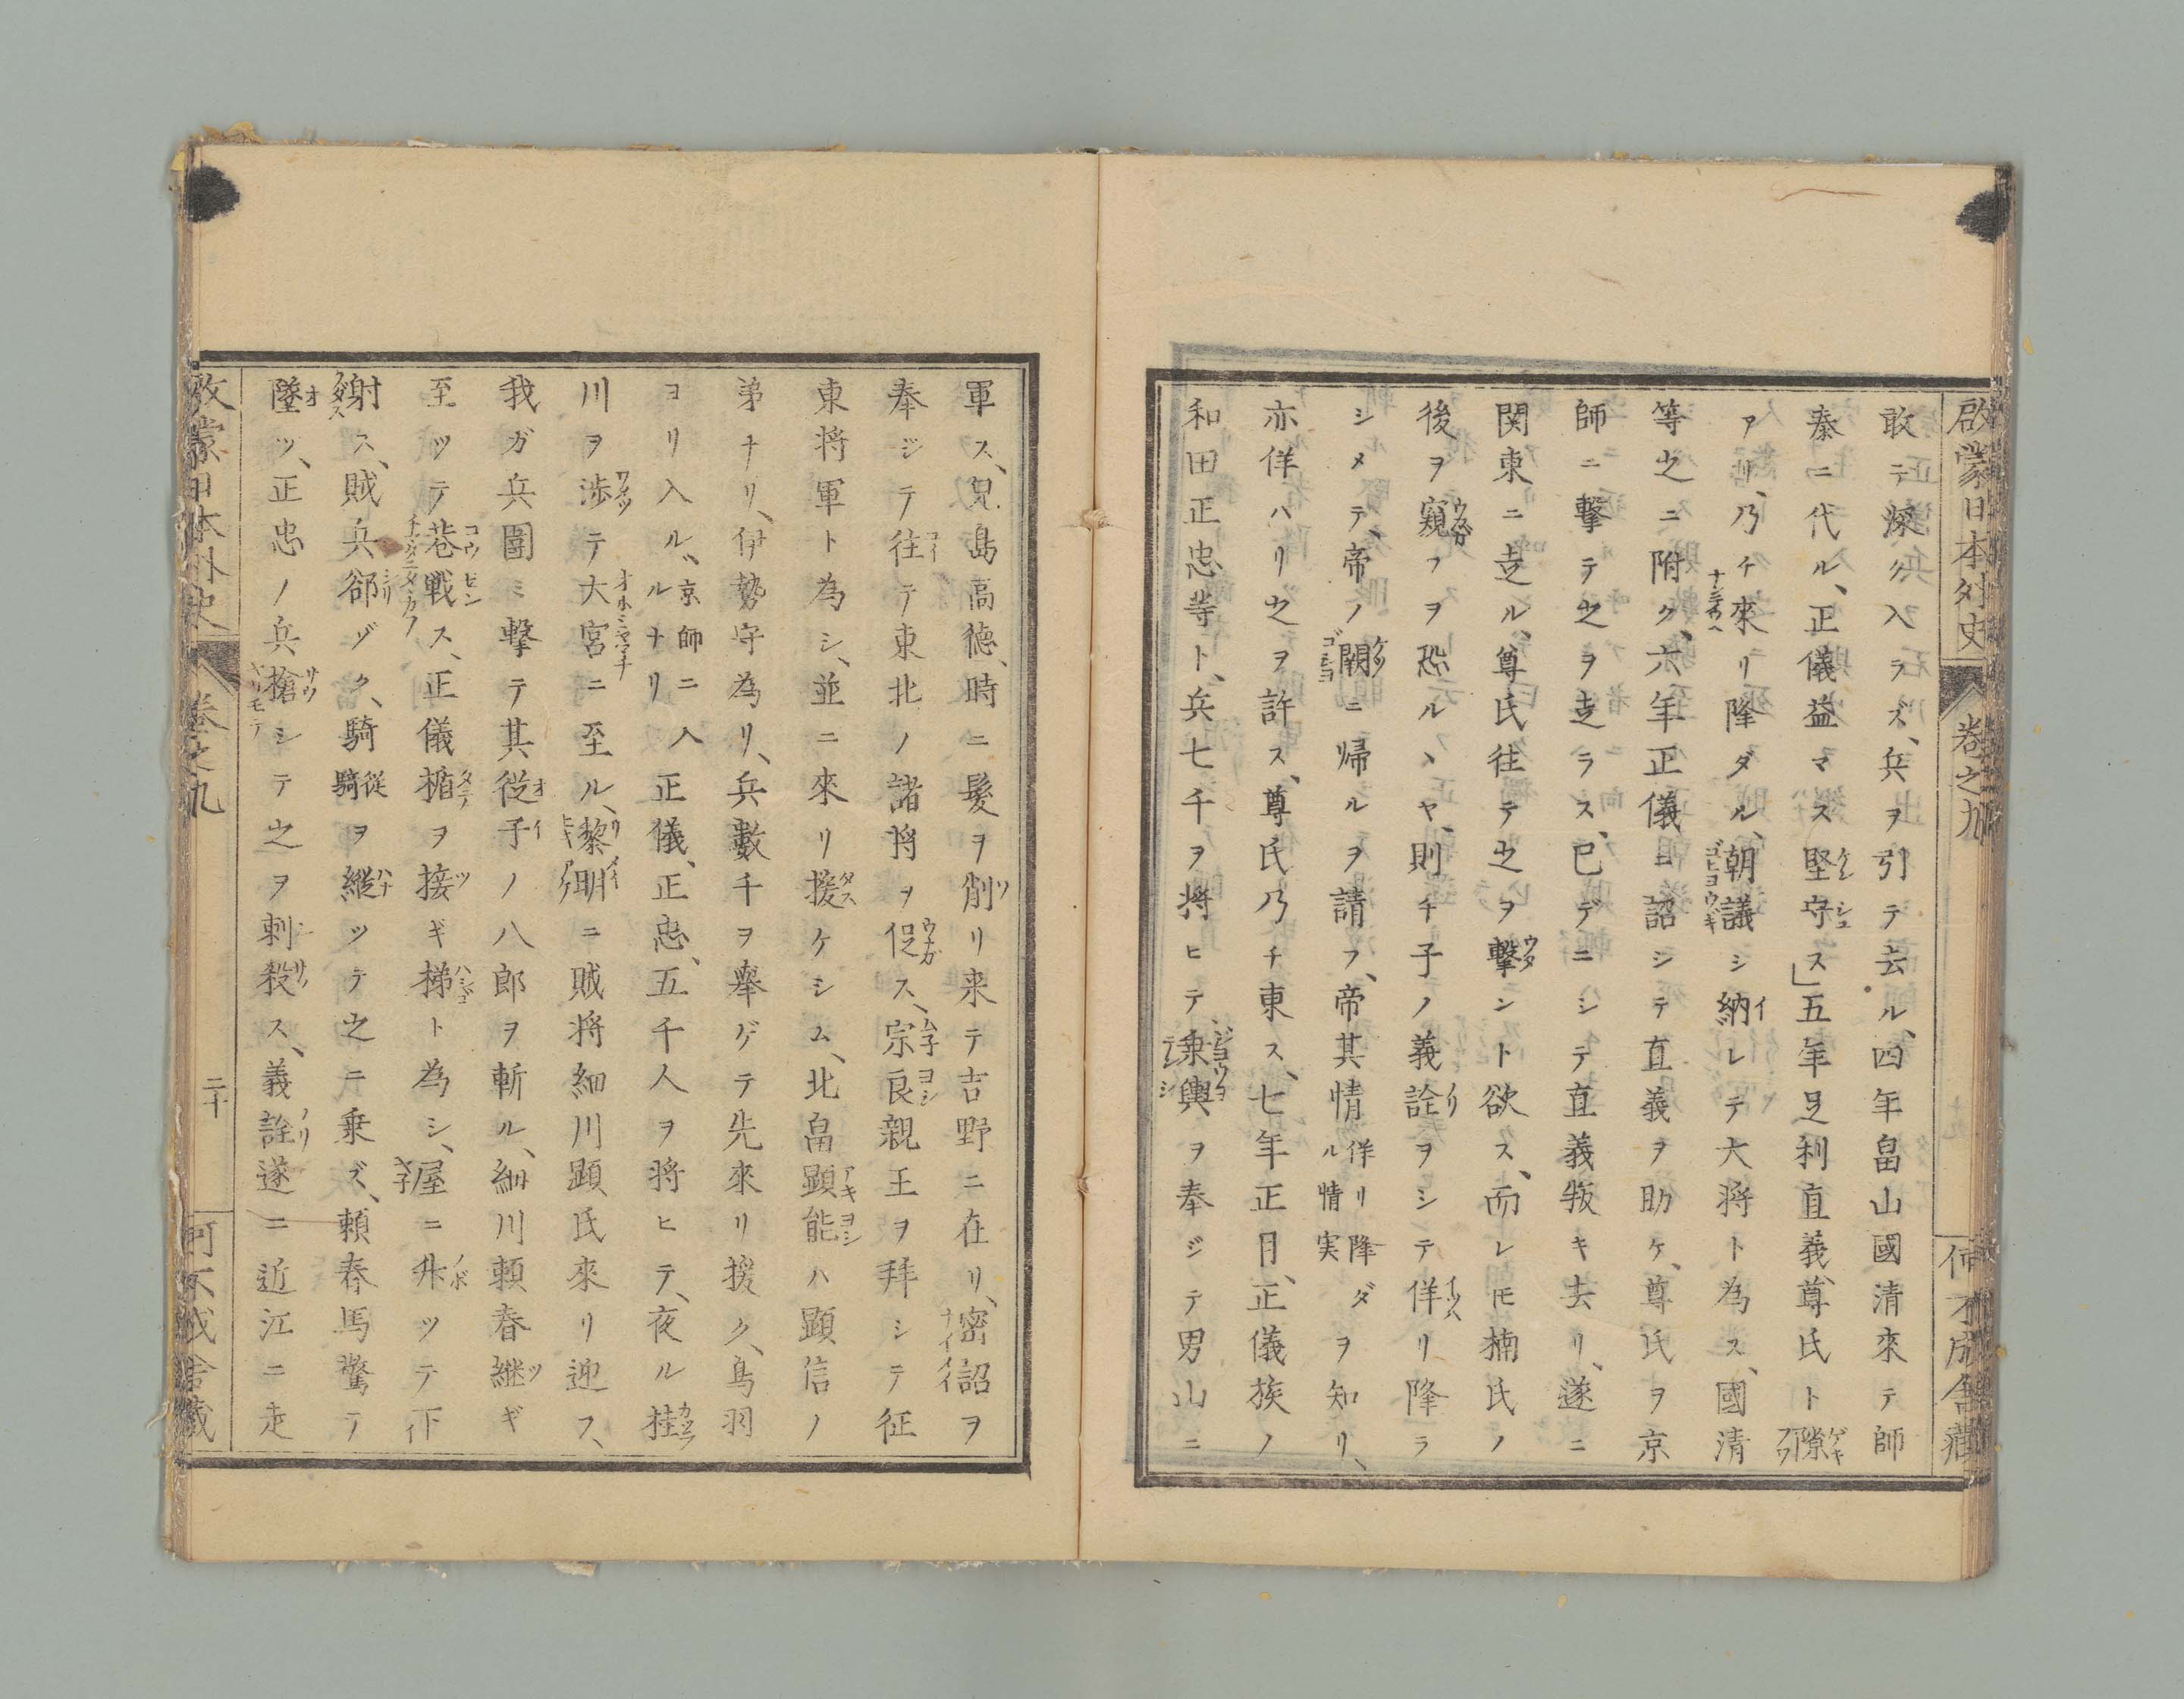 啓蒙日本外史 巻之九
敢テ深ク入ラズ、兵ヲ引テ去ル、四年畠山國清來テ師
秦ニ代ル、正儀益マス堅守ス」五年足利直義、尊氏ト隙
アリ、乃チ來リ降ダル、朝議シ納レテ大将ト為ス、國清
等之ニ附ク、六年正儀ニ詔シテ直義ヲ助ケ、尊氏ヲ京
師ニ撃テ之ヲ走ラス、已デニシテ直義叛キ去リ、遂ニ
関東ニ走ル、尊氏往テ之ヲ撃ント欲ス、而レモ楠氏ノ
後ヲ窺フヲ恐ルヽヤ、則チ子ノ義詮ヲシテ佯リ降ラ
シメテ、帝ノ闕ニ帰ルヲ請フ、帝其情佯リ降ダル情実ヲ知リ、
亦佯ハリ之ヲ許ス、尊氏乃チ東ス、七年正月、正儀族ノ
和田正忠等ト、兵七千ヲ将ヒテ乗輿ヲ奉ジテ男山ニ
軍ス、兒島高徳、時ニ髪ヲ削リ来テ吉野ニ在リ、密詔ヲ
奉ジテ往テ東北ノ諸将ヲ促ス、宗良親王ヲ拜シテ征
東将軍ト為シ、並ニ來リ援ケシム、北畠顕能ハ顕信ノ
弟ナリ、伊勢守為リ、兵數千ヲ舉ゲテ先來リ援ク、鳥羽
ヨリ入ル、京師ニ入ルナリ正儀、正忠、五千人ヲ将ヒテ、夜ル桂
川ヲ渉テ大宮ニ至ル、黎明ニ賊将細川顕氏來リ迎ス、
我ガ兵圍ミ撃テ其従子ノ八郎ヲ斬ル、細川頼春継ギ
至ツテ巷戦ス、正儀楯ヲ接ギ梯ト為シ、屋ニ升ツテ下
射ス、賊兵郤ゾク、騎従騎ヲ縦ツテ之ニ乗ズ、頼春馬驚テ
墜ツ、正忠ノ兵槍シテ之ヲ刺殺ス、義詮遂ニ近江ニ走
啓蒙日本外史 巻之九 二十